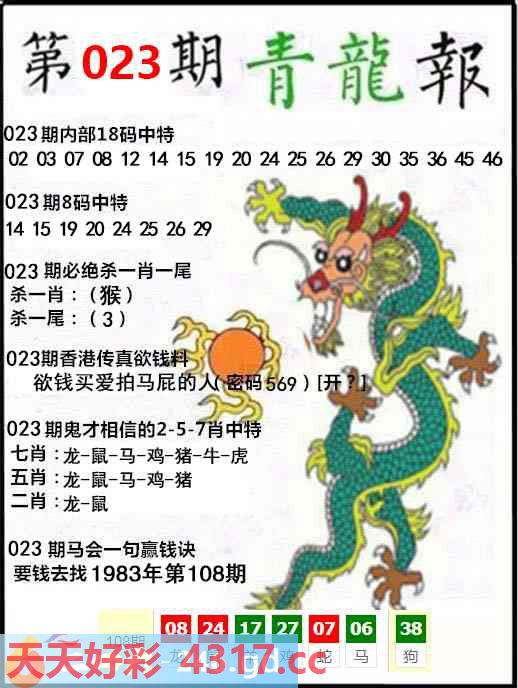 第023期青龍報
023期内部18码中特
02 03 07 08 12 14 15 19 20 24 25 26 29 30 35 36 45 46
023期8码中特
14 15 19 20 24 25 26 29
023期必绝杀一肖一尾
杀一肖：（猴）
杀一尾：（3）
023期香港传真欲钱料
欲钱买爱拍马屁的人（密码569）[开？]
023期鬼才相信的2-5-7肖中特
七肖：龙-鼠-马-鸡-猪-牛-虎
五肖：龙-鼠-马-鸡-猪
二肖：龙-鼠
023期马会一句赢钱诀
要钱去找1983年第108期
08 24 17 27 07 06 38
108期 龙 鸡 蛇 马 狗
天天好彩 4317.cc